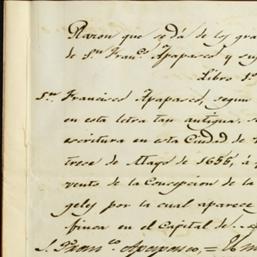 Razon que se dá de los gra
de Sn. Franco. Apapasco y su
Libro 1o
Sn. Francisco Apapasco, segun
en esta letra tan antigua. se
escritura en esta Ciudad de
trese de Mayo de 1656, á
vento de la Concepcion de la
geles por la cual aparece
finca en el Capital de
S. Franco. Apapasco, = Un